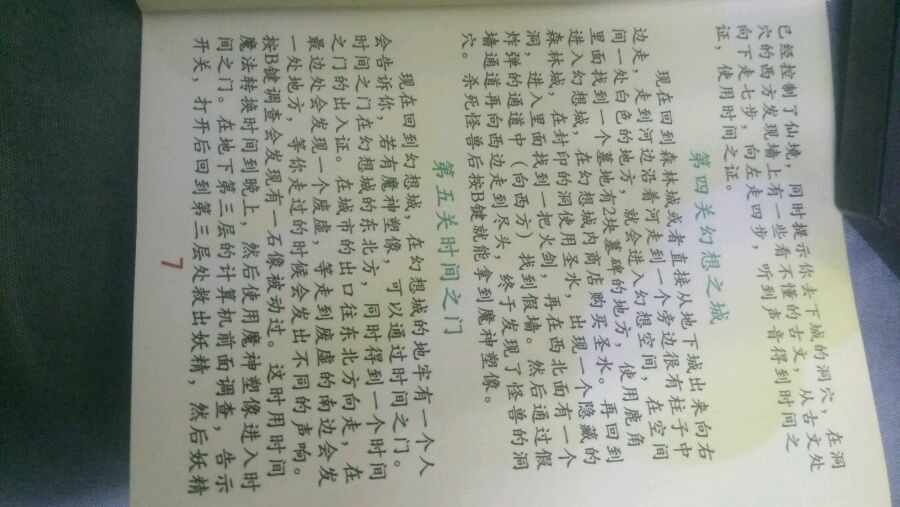 已经控制了仙境，同时提示你去下城的洞穴，在洞
穴的西方发现墙上有一些看不懂的古文，从古文处
向下走七步，向左走四步，听到声音得到时间之
证，使用时间之证。
第四关幻想之城
现在回到森林城或者直接从地下城出来向右
边走，走到河边沿着河走到一个旁边很有柱子中
间一处白色的地方，就会进入幻想空间，在空间
里面找到一个墓地有2块墓碑的地方，使用鹿角
进入幻想城，在幻想城内商店购买圣水。再回到
森林城，在封印的洞使用圣水，出现一个隐藏的
洞，进入里面找到一把火剑，再在西北面有一个
炸弹的通道中（向西方）找到假墙。然后通过假
墙通道再向西边走到尽头，终于发现了怪兽的洞
穴。杀死怪兽后按B键就能拿到魔神塑像。
第五关时间之门
现在回到幻想城，在幻想城的地牢有一个人
会告诉你，若有魔神塑像，可以通过时间之门。
时间之门在幻想城的东北方，同时得到一个时间
之门的出入证。在城市的出口往东北方向走，在
最边处会发现一个废虚，等走到废虚的南边会发
一处地方，等你走过的时候会发出不同的声响。
按B键调查会发现有一石像被动过。这时用时间
魔法转换时间到晚上，然后使用魔神塑像进入时
间之门。在地下第三层的计算机前面调查，告示
开关，打开后回到第二层处救出妖精，然后妖精
7